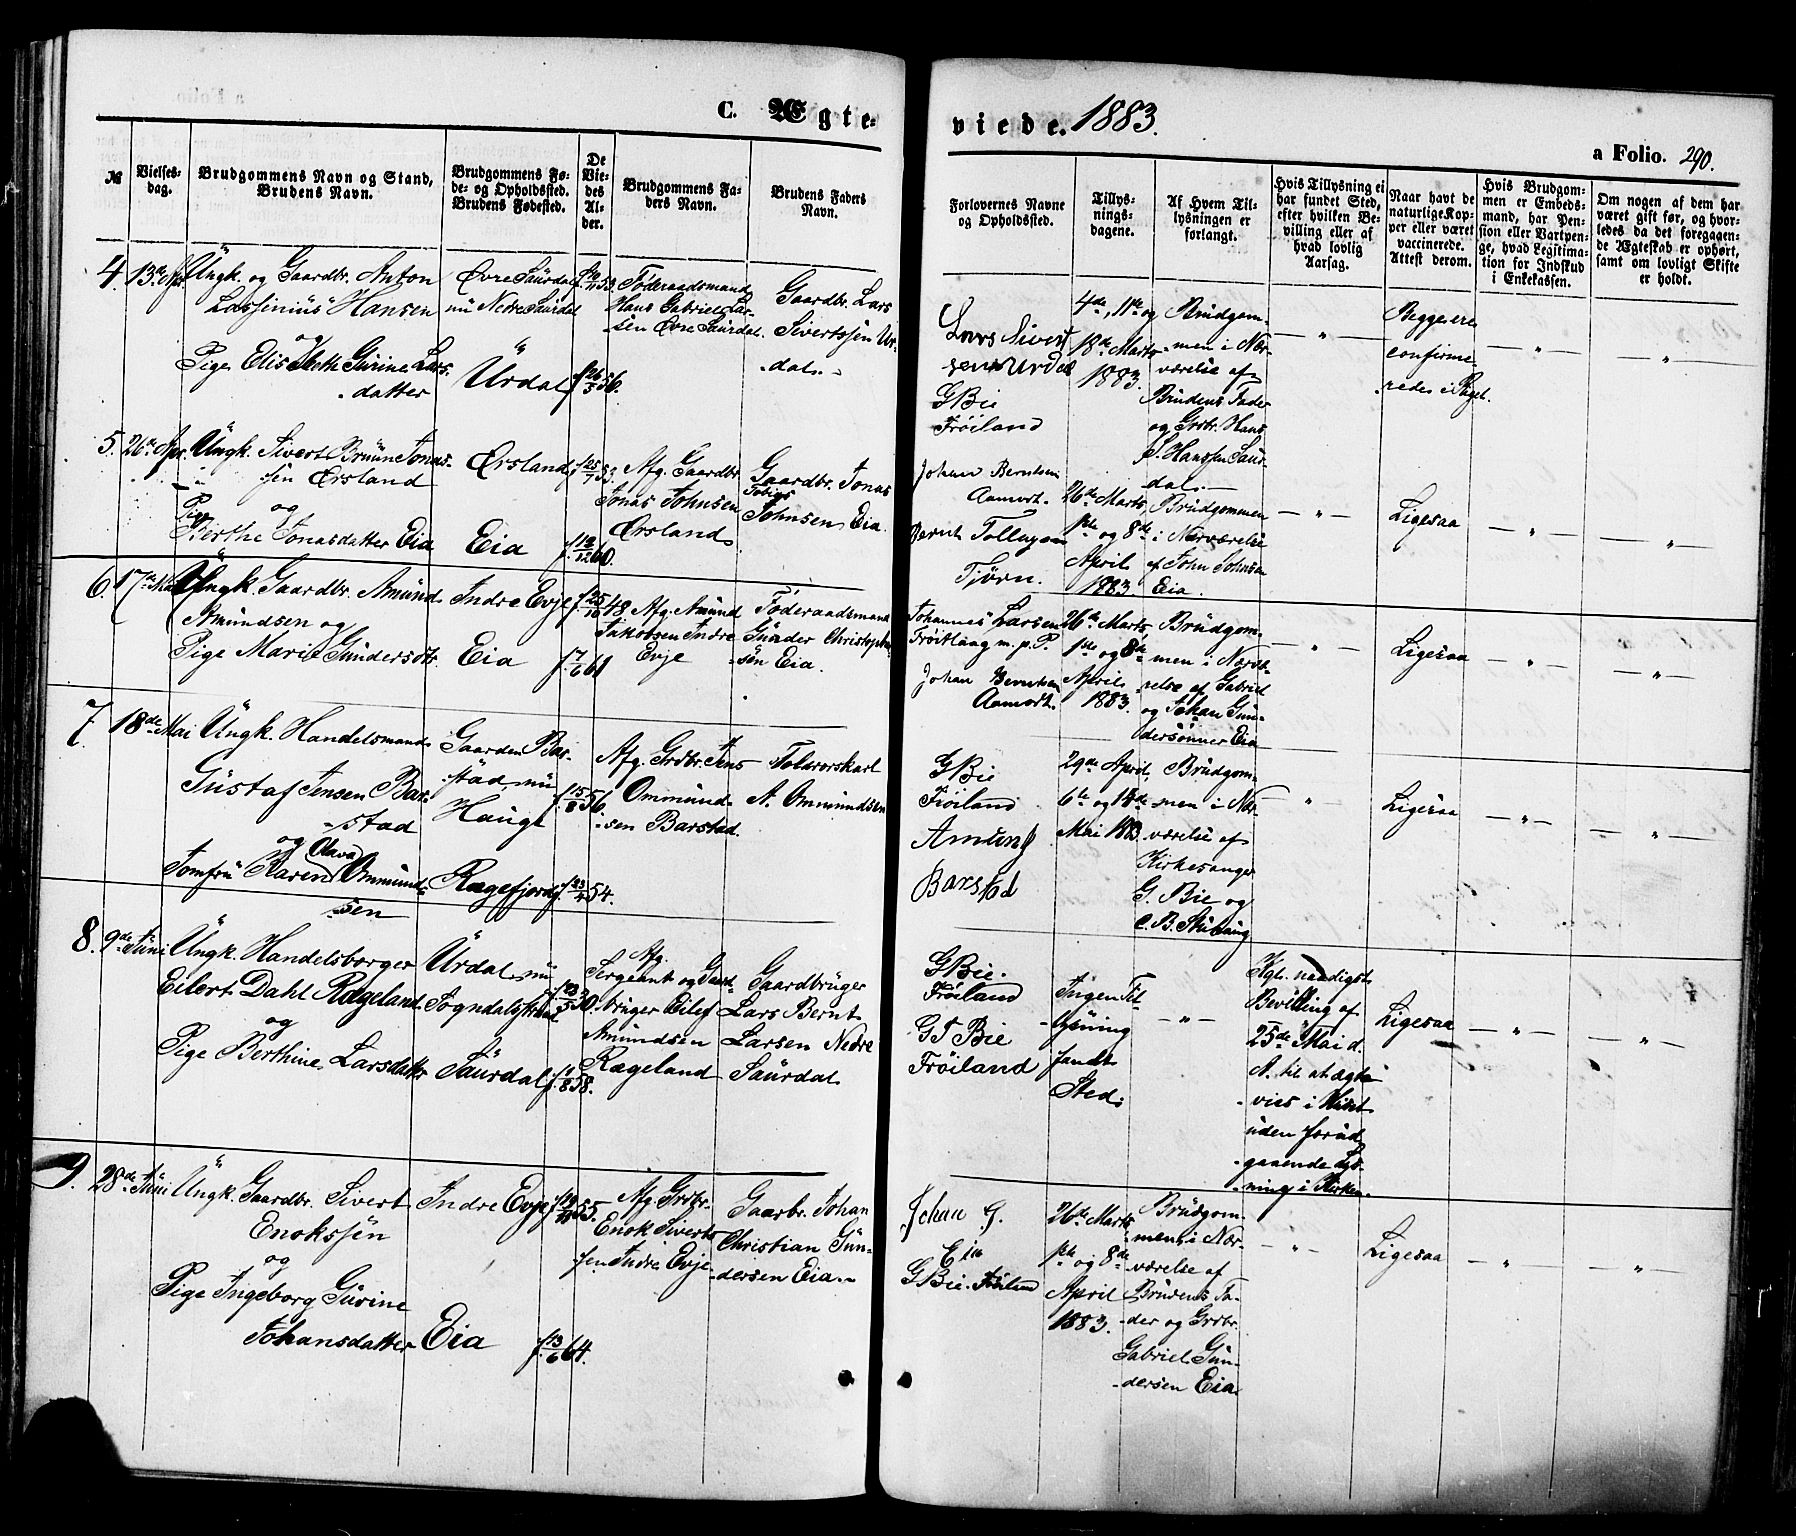 C. Ægte-
viede. 1883.
a Folio. 290.
№
Vielses-
dag.
Brudgommens Navn og Stand,
Brudens Navn.
Brudgommens Fø-
de- og Opholdssted.
Brudens Fødested.
De
Vie-
des
Al-
der.
Brudgommens Fa-
ders Navn.
Brudens Faders
Navn.
Forlovernes Navne
og Opholdssted.
Tillys-
nings-
dagene.
Af Hvem Til-
lysningen er
forlangt.
Hvis Tillysning ei
har fundet Sted,
efter hvilken Be-
villing eller af
hvad lovlig
Aarsag.
Naar havt de
naturlige Kop-
per eller været
vaccinerede.
Attest derom.
Hvis Brudgom-
men er Embeds-
mand, har Pen-
sion eller Vartpen-
ge, hvad Legitima-
tion for Indskud
i Enkekassen.
Om nogen af dem har
været gift før, og hvor-
ledes da det foregaaen-
de Ægteskab er ophørt,
samt om lovligt Skifte
er holdt.
4. 13de Apr.
Ungk. og Gaardbr. Anton
Lassinius Hansen
og
Pige Elisabeth Gurine Lars-
datter
Øvre Saurdal
nu Nedre Saurdal
Urdal
f. 26/3 56.
Føderaadsmand
Hans Gabriel Lar-
sen Øvre Saurdal.
Gaardbr. Lars
Sivertssen Ur-
dal.
Lars Sivert
sen Urdal
G Bie
Frøiland
4de, 11te og
18de Marts
1883.
Brudgom-
men i Nær-
værelse af
Brudens Fader
og Grbr. Hans
S. Hanssen Saur-
dal.
— " —
Begge ere
confirme-
rede i Prgjt.
— " —
— " —
5. 26de Apr.
Ungk. Sivert Bruun Jonas-
sen Ørsland
og
Pige
Berthe Jonasdatter Eia
Ørsland
Eia
f. 25/7 53.
f. 12/12 60.
Afg. Gaardbr.
Jonas Johnsen
Ørsland
Gaardbr. Jonas
Tobias
Johnsen Eia.
Johan Berntsen
Aamodt.
Bernt Tollagsen
Tjörn.
26de Marts,
1ste og 8de
April
1883
Brudgommen
i Nærværelse
af John Johnsen
Eia.
— " —
Ligesaa
— " —
— " —
6. 17de Mai
Ungk. Gaardbr. Amund
Amundsen og
Pige Marie Gundersdtr.
Indre Evje
Eia
f. 25/10 48
f. 7/6 61
Afg. Amund
Jakobsen Indre
Evje
Føderaadsmand
Gunder Christophe-
sen Eia.
Johannes Larsen
m. p. P.
Johan Berntsen
Aamodt.
26de Marts
1ste og 8de
April
1883.
Brudgom-
men i Nærvæ-
relse af Gabriel
og Johan Gun-
dersønner Eia
— " —
Ligesaa
— " —
— " —
7. 18de Mai
Ungk. Handelsmand
Gustaf Jensen Bar-
stad
og Olava
Jomfru Karen Ommund-
sen
Gaarden Bar-
stad, nu
Hauge
Rægefjord
f. 15/8 56.
f. 23/4 54.
Afg. Grdbr. Jens
Ommund-
sen Barstad.
Toldrorskarl
A. Ommundsen
G Bie
Frøiland
Amting
Barstad
29de April,
6te og 14de
Mai 1883
Brudgom-
men i Nær-
værelse af
Kirkesanger
G. Bie og
— " —
Ligesaa
— " —
— " —
8. 9de Juni
Ungk. Handelsborger
Eilert Dahl Rægeland
og
Pige Berthine Larsdatter
Urdal, nu
Sogndalsstrand
Saurdal
f. 23/5 30.
f. 11/8 58.
Afg.
Sergeant og Gaard-
bruger Eilef
Amundsen
Rægeland
Gaardbruger
Lars Bernt
Larsen Nedre
Saurdal
G Bie.
Frøiland
G T Bie
Frøiland
Ingen Til-
lysning
fandt
Sted.
— " —
Kgl. naadigst
Bevilling af
25de Mai d.
A. til at ægte-
vies i Huset
uden forud
gaaende Lys-
ning i Kirken.
Ligesaa
— " —
— " —
9. 28de Juni
Ungk. Gaardbr. Sivert
Enokssen
og
Pige Ingeborg Gurine
Johansdatter
Indre Evje
Eia
f. 13/6 64.
Afg. Grbr.
Enok Siverts-
sen Indre Evje
Gaarbr. Johan
Christian Gun-
dersen Eia.
Johan G.
Eia
G Bie. Frøiland
26de Marts
1ste og 8de
April
1883.
Brudgom-
men, i Nær-
værelse af
Brudens Fa-
der og Grbr.
Gabriel Gun-
dersen Eia
— " —
Ligesaa
— " —
— " —